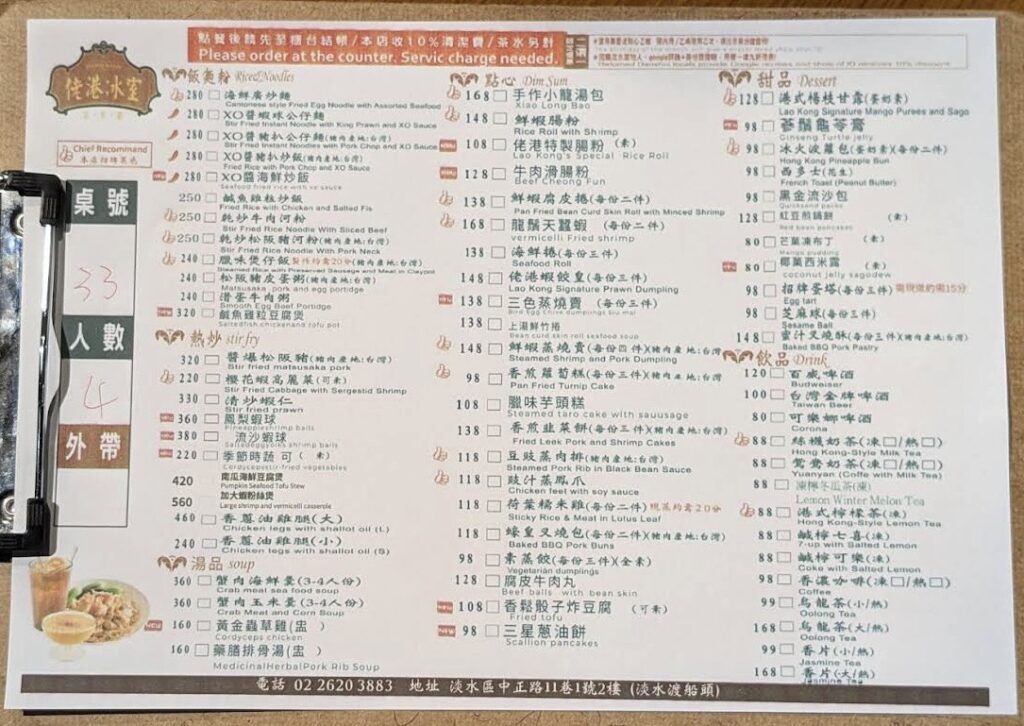 點餐後請先至櫃台結帳/本店收10%清潔費/茶水另計
Please order at the counter. Servic charge needed.
佬港冰室
Chief Recommend
本店招牌菜色
桌號
33
人數
4
外帶
飯麵粉 Rice&Noodles
280 海鮮廣炒麵
Cantonese style Fried Egg Noodle with Assorted Seafood
280 XO醬蝦球公仔麵
Stir Fried Instant Noodle with King Prawn and XO Sauce
280 XO醬豬扒公仔麵(豬肉產地:台灣)
Stir Fried Instant Noodles with Pork Chop and XO Sauce
280 XO醬豬扒炒飯(豬肉產地:台灣)
Fried Rice with Pork Chop and XO Sauce
280 XO醬海鮮炒飯
Seafood fried rice with xo sauce
250 鹹魚雞粒炒飯
Fried Rice with Chicken and Salted Fis
250 乾炒牛肉河粉
Stir Fried Rice Noodle With Sliced Beef
250 乾炒松阪豬河粉(豬肉產地:台灣)
Stir Fried Rice Noodle With Pork Neck
240 臘味煲仔飯 製作約需20分(豬肉產地:台灣)
Steamed Rice with Preserved Sausage and Meat in Claypot
240 松阪豬皮蛋粥(豬肉產地:台灣)
Matsusaka pork and egg portidge
240 滑蛋牛肉粥
Smooth Egg Beef Portidge
320 鹹魚雞粒豆腐煲
Saltedfish chickenand tofu pot
熱炒 stir fry
320 醬爆松阪豬(豬肉產地:台灣)
Stir fried matsusaka pork
220 櫻花蝦高麗菜(可素)
Stir Fried Cabbage with Sergestid Shrimp
330 清炒蝦仁
Stir fried prawn
360 鳳梨蝦球
Pineappleshrimp balls
380 流沙蝦球
Saltedeggyorks shrimp balls
220 季節時蔬 可( 素)
Cordycepsstir-fried vegetables
420 南瓜海鮮豆腐煲
Pumpkin Seafood Tofu Stew
560 加大蝦粉絲煲
Large shrimp and vermicelli casserole
460 香蔥油雞腿(大)
Chicken legs with shallot oil (L)
240 香蔥油雞腿(小)
Chicken legs with shallot oil (S)
湯品 soup
360 蟹肉海鮮羹(3-4人份)
Crab meat sea food soup
360 蟹肉玉米羹(3-4人份)
Crab Meat and Corn Soup
160 黃金蟲草雞(盅 )
Cordyceps chicken
160 藥膳排骨湯(盅 )
MedicinalHerbalPork Rib Soup
點心 Dim Sum
168 手作小龍湯包
Xiao Long Bao
148 鮮蝦腸粉
Rice Roll with Shrimp
108 佬港特製腸粉 (素)
Lao Kong's Special Rice Roll
128 牛肉滑腸粉
Beef Cheong Fun
138 鮮蝦腐皮捲(每份二件)
Pan Fried Bean Curd Skin Roll with Minced Shrimp
168 龍鬚天蠶蝦 (每份二件)
vermicelli Fried shrimp
138 海鮮捲(每份三件)
Seafood Roll
148 佬港蝦餃皇(每份三件)
Lao Kong Signature Prawn Dumpling
138 三色蒸燒賣 (每份三件)
Bird Egg Chive dumplings Siu mai
138 上湯鮮竹捲
Bean curd skin roll seafood soup
148 鮮蝦蒸燒賣(每份四件)(豬肉產地:台灣)
Steamed Shrimp and Pork Dumpling
98 香煎蘿蔔糕(每份三件)(豬肉產地:台灣)
Pan Fried Turnip Cake
108 臘味芋頭糕
Steamed taro cake with sauusage
138 香煎韭菜餅(每份三件)(豬肉產地:台灣)
Fried Leek Pork and Shrimp Cakes
118 豆豉蒸肉排(豬肉產地:台灣)
Steamed Pork Rib in Black Bean Sauce
118 豉汁蒸鳳爪
Chicken feet with soy sauce
118 荷葉糯米雞(每份二件) 現蒸約需20分
Sticky Rice & Meat in Lotus Leaf
118 蠔皇叉燒包(每份二件)(豬肉產地:台灣)
Baked BBQ Pork Buns
98 素蒸餃(每份三件)(全素)
Vegetarian dumplings
128 腐皮牛肉丸
Beef balls with bean skin
108 香鬆骰子炸豆腐 (可素)
Fried tofu
98 三星蔥油餅
Scallion pancakes
甜品 Dessert
128 港式楊枝甘露(蛋奶素)
Lao Kong Signature Mango Purees and Sago
98 蔘鬚龜苓膏
Ginseng Turtle jelly
98 冰火波蘿包(蛋奶素)(每份二件)
Hong Kong Pineapple Bun
98 西多士(花生)
French Toast (Peanut Butter)
98 黑金流沙包
Quicksand packs
128 紅豆煎鍋餅 (素)
Red bean pancakes
80 芒菓凍布丁 (素)
Mango pudding
80 椰菓西米露 (素)
coconut jelly sagodew
98 招牌蛋塔(每份三件) 需現做約需15分
Egg tart
98 芝麻球(每份三件)
Sesame Ball
148 蜜汁叉燒酥(每份三件)(豬肉產地:台灣)
Baked BBQ Pork Pastry
飲品 Drink
120 百威啤酒
Budweiser
100 台灣金牌啤酒
Taiwan Beer
80 可樂娜啤酒
Corona
88 絲襪奶茶(凍□/熱□)
Hong-Kong-Style Milk Tea
88 鴛鴦奶茶(凍□/熱□)
Yuanyan (Coffe with Milk Tea)
88 凍檸冬瓜茶(凍)
Lemon Winter Melon Tea
88 港式檸檬茶(凍)
Hong-Kong-Style Lemon Tea
88 鹹檸七喜(凍)
7-up with Salted Lemon
88 鹹檸可樂(凍)
Coke with Salted Lemon
98 香濃咖啡(凍□/熱□)
Coffee
99 烏龍茶(小/熱)
Oolong Tea
168 烏龍茶(大/熱)
Oolong Tea
99 香片(小/熱)
Jasmine Tea
168 香片(大/熱)
Jasmine Tea
電話 02 2620 3883 地址 淡水區中正路11巷1號2樓 (淡水渡船頭)